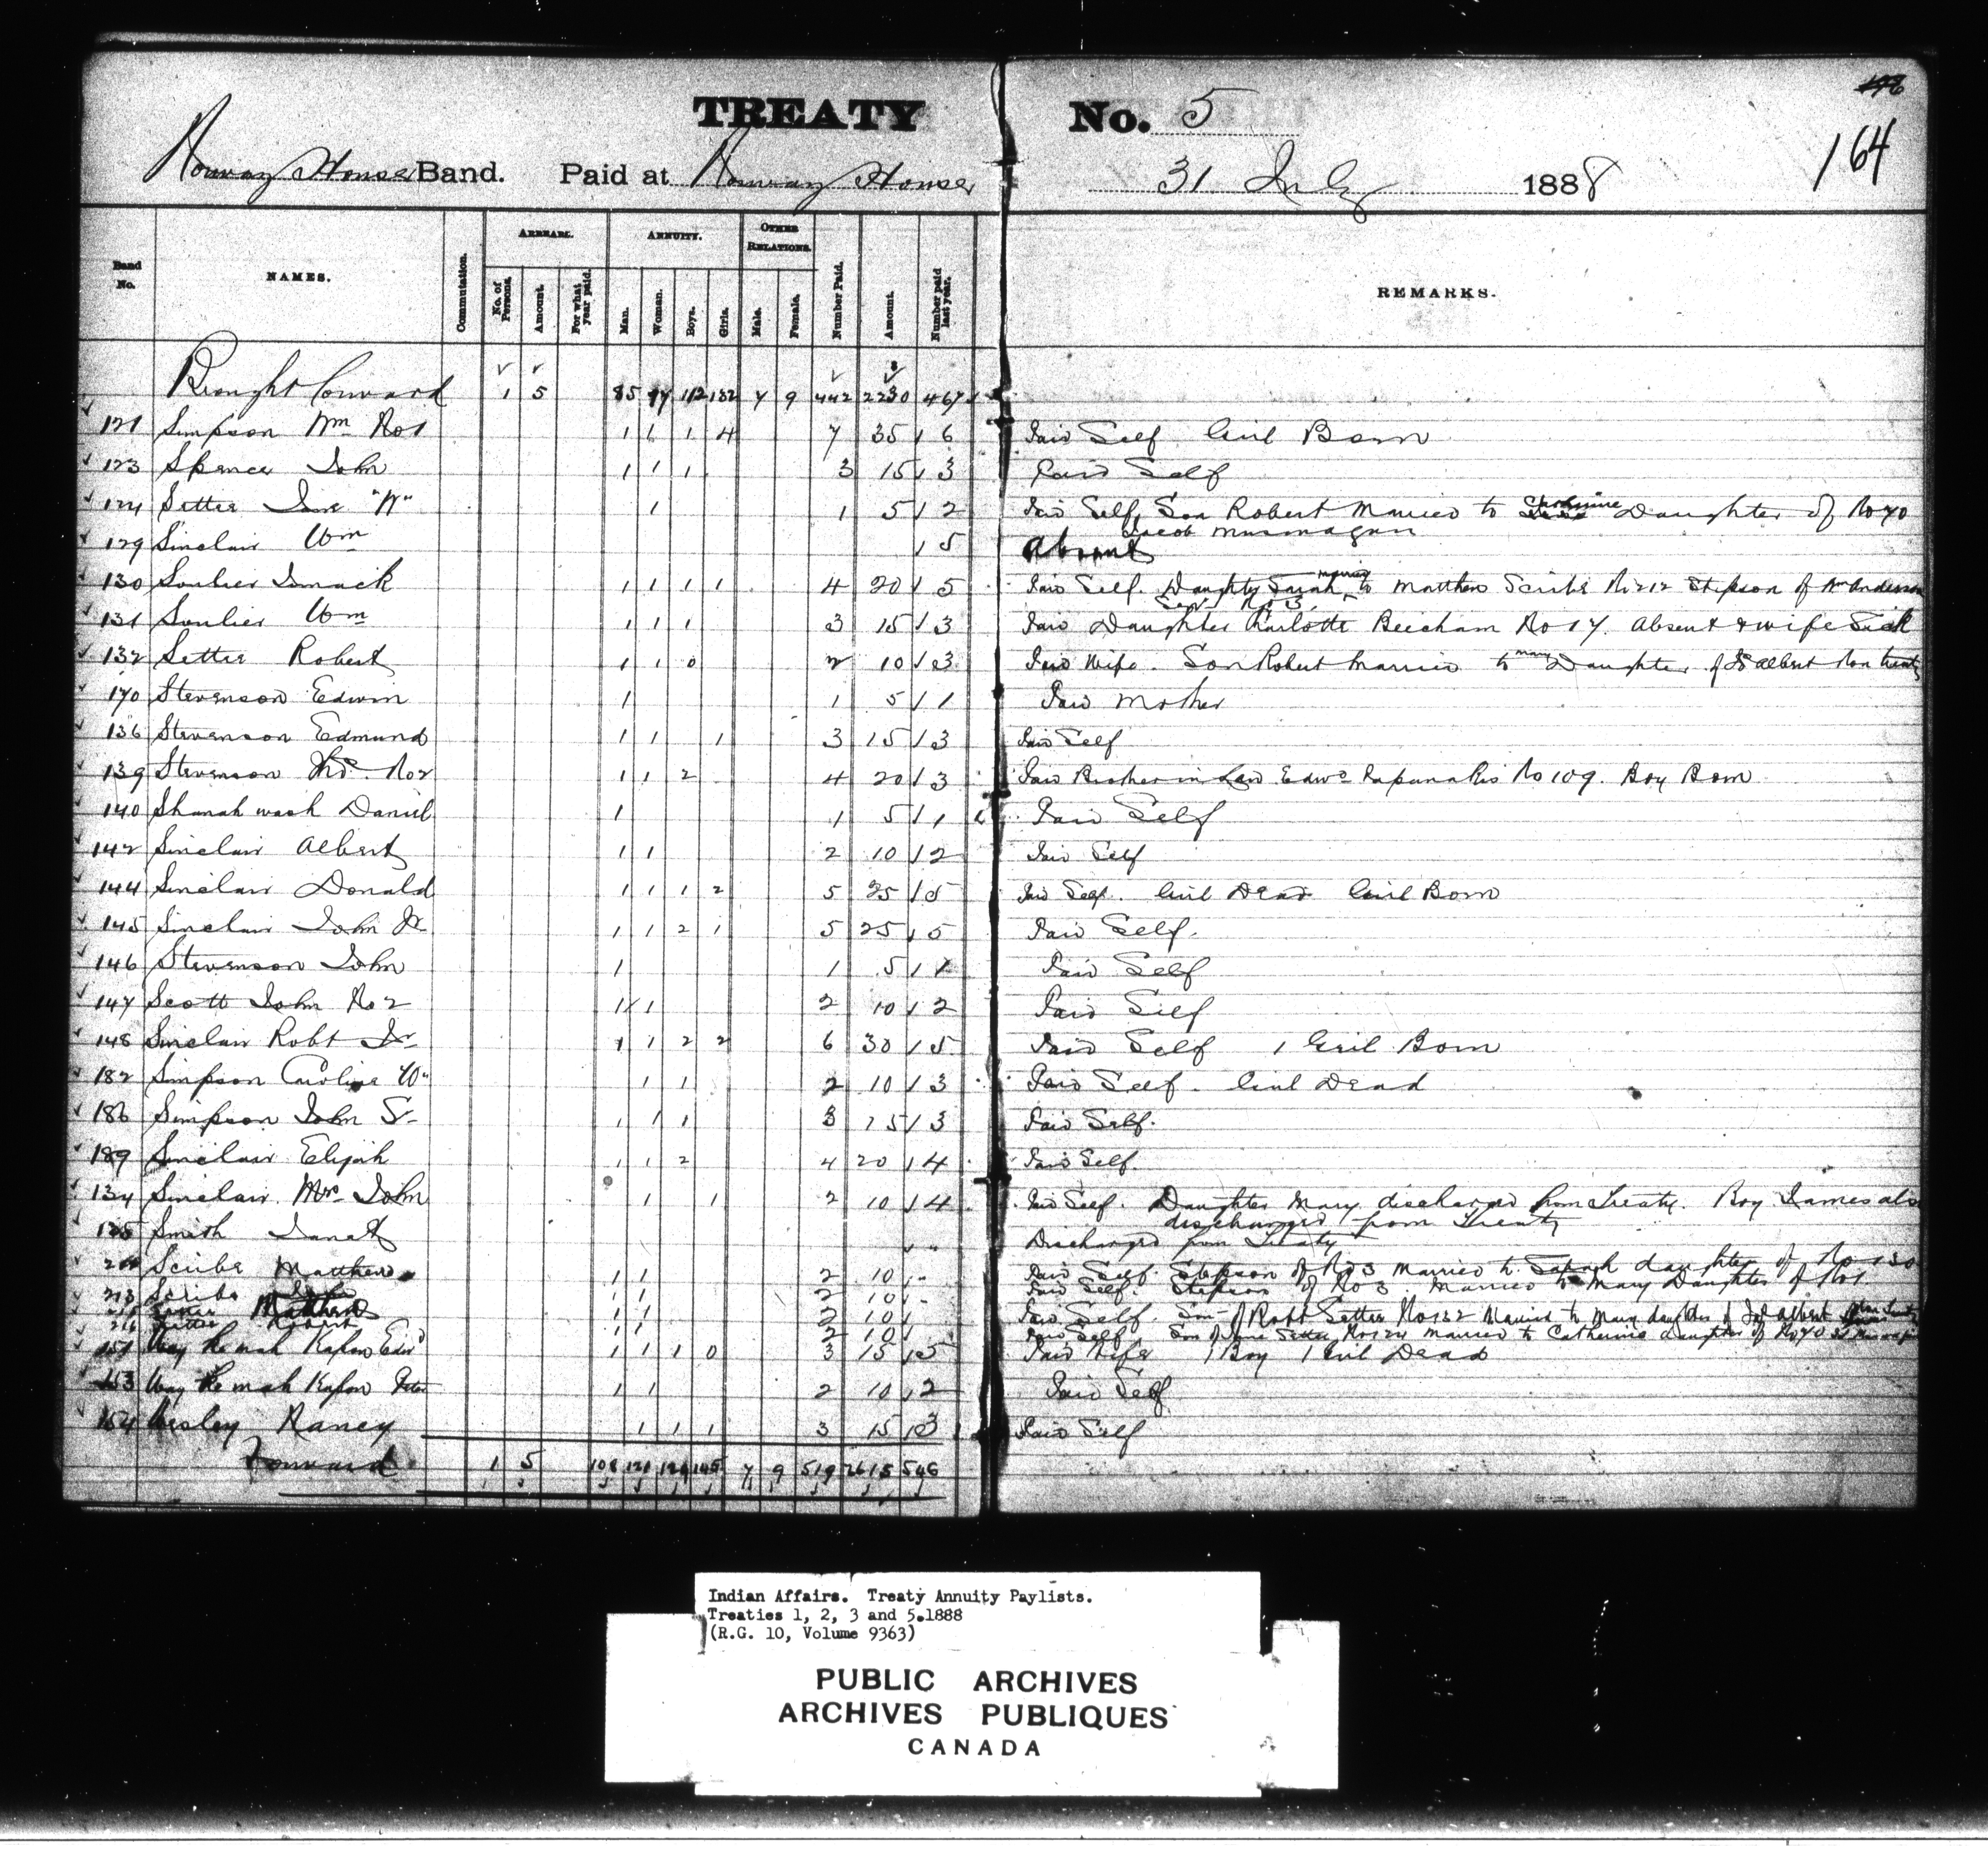 TREATY No. 5
178
164
Norway House Band. Paid at Norway House 31 July 1888
Band No. NAMES. Commutation. ARREARS. No. of Persons. Amount. For what year paid. ANNUITY. Man. Woman. Boys. Girls. OTHER RELATIONS. Male. Female. Number Paid. Amount. Number paid last year. REMARKS.
Brought Forward 1 5 85 97 112 132 7 9 442 2230 467
121 Simpson Wm No 1 1 1 1 4 7 35 6 Paid Self Girl Born
123 Spence John 1 1 1 3 15 3 Paid Self
124 Setter Jane "W" 1 1 5 2 Paid Self, Son Robert Married to Catherine Daughter of No 40
Jacob Musmagun
129 Sinclair Wm 5 Absent
130 Soulier Smack 1 1 1 1 4 20 5 Paid Self. Daughter Sarah married to Matthew Scribe No 212 Stepson of Wm Anderson
Senr No 3
131 Soulier Wm 1 1 1 3 15 3 Paid Daughter Charlotte Beecham No 17. Absent & wife Sick
132 Setter Robert 1 1 0 2 10 3 Paid Wife. Son Robert Married to Mary Daughter of Js Albert Non treaty
170 Stevenson Edwin 1 1 5 1 Paid Mother
136 Stevenson Edmund 1 1 1 3 15 3 Paid Self
139 Stevenson Thos. No 2 1 1 2 4 20 3 Paid Brother in Law Edwd Papanakis No 109. Boy Born
140 Shanah wash Daniel 1 1 5 1 Paid Self
142 Sinclair Albert 1 1 2 10 2 Paid Self
144 Sinclair Donald 1 1 1 2 5 25 5 Paid Self. Girl Dead Girl Born
145 Sinclair John Jr 1 1 2 1 5 25 5 Paid Self.
146 Stevenson John 1 1 5 1 Paid Self
147 Scott John No 2 1 1 2 10 2 Paid Self
148 Sinclair Robt Jr 1 1 2 2 6 30 5 Paid Self 1 Girl Born
182 Simpson Caroline W" 1 1 2 10 3 Paid Self. Girl Dead
186 Simpson John Sr 1 1 1 3 15 3 Paid Self.
189 Sinclair Elijah 1 1 2 4 20 4 Paid Self.
134 Sinclair Mrs John 1 1 2 10 4 Paid Self. Daughter Mary discharged from Treaty. Boy James also
discharged from Treaty
Smith Janet Discharged from Treaty
Scribe Matthew 1 1 2 10 - Paid Self. Stepson of No 3 Married to Sarah daughter of No 130
213 Scribe 1 1 2 10 - Paid Self. Stepson of No 3. Married to Mary Daughter of No 1
Setter Matthew 1 1 2 10 Paid Self. Son of Robt Setter No 132 Married to Mary daughter of Js Albert
216 Setter Robert 1 1 2 10 Paid Self Son of Jane Setter No 124 Married to Catherine daughter of No 40
151 Way ke mah Kapow Edwd 1 1 1 0 3 15 5 Paid Wife 1 Boy 1 Girl Dead
153 Way ke mah Kapow Peter 1 1 2 10 2 Paid Self
154 Wesley Nancy 1 1 1 3 15 3 Paid Self
Forward 1 5 108 121 129 145 7 9 519 2615 546
Indian Affairs. Treaty Annuity Paylists.
Treaties 1, 2, 3 and 5.1888
(R.G. 10, Volume 9363)
PUBLIC ARCHIVES
ARCHIVES PUBLIQUES
CANADA